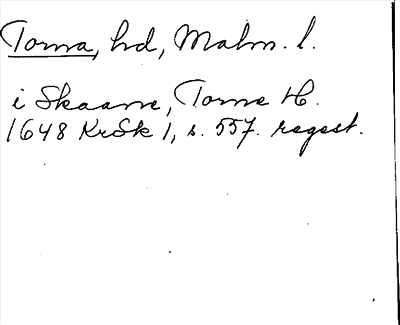 Torna, hd, Malm. l.
i Skaane, Torne H.
1648 KrSk 1, s. 557. regest.